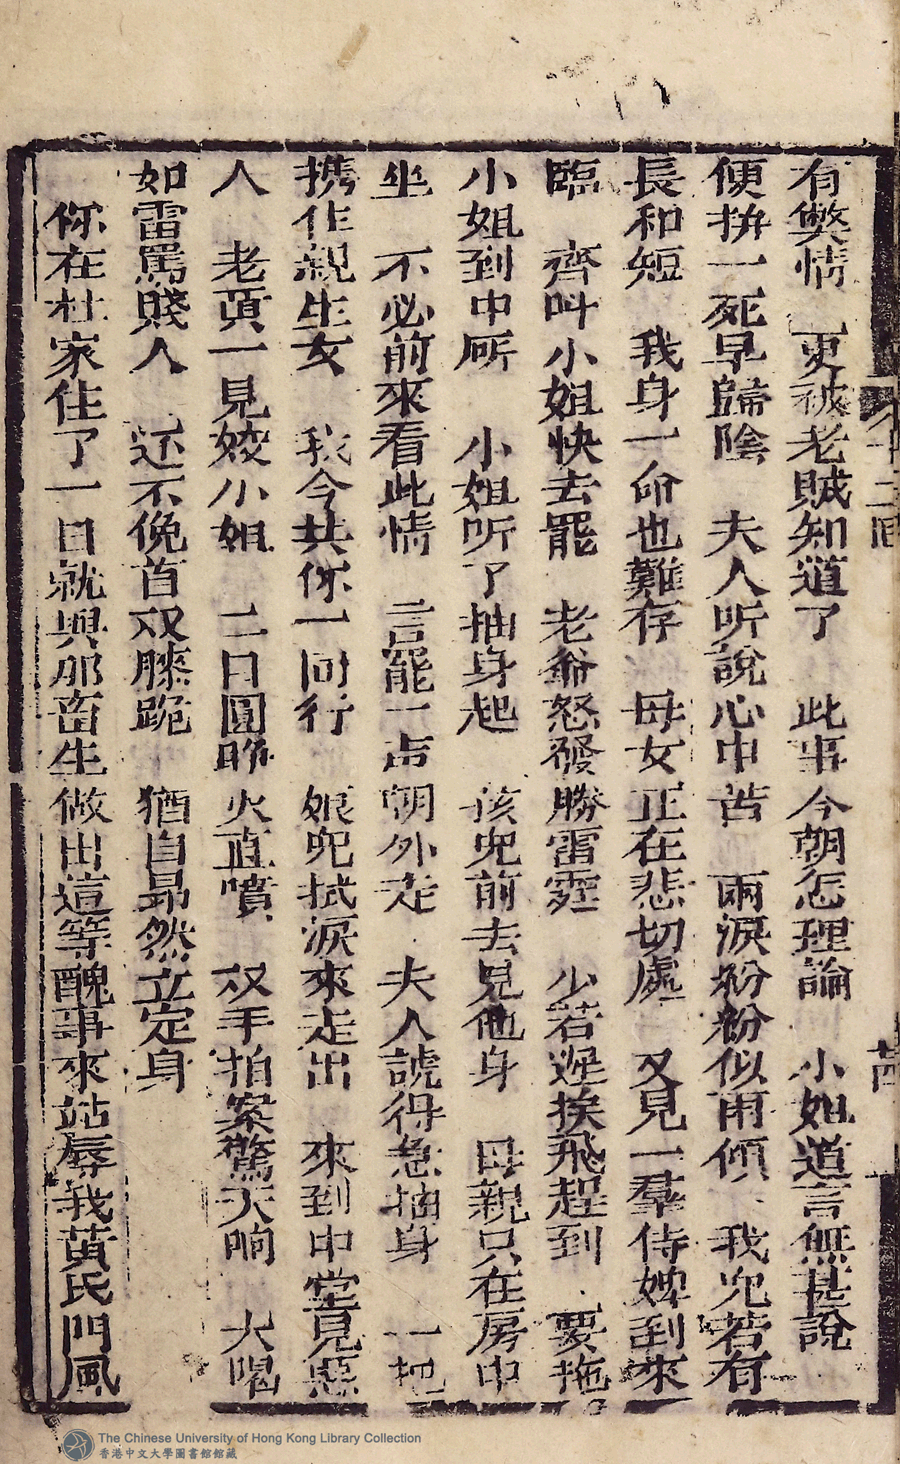 有獘情　更被老賊知道了　此事今朝怎理論　小姐道言無甚說
便拚一死早歸陰　夫人听說心中苦　兩淚紛紛似雨傾　我兒若有
長和短　我身一命也難存　母女正在悲切處　又見一羣侍婢到來
臨　齊叫小姐快去罷　老爺怒發勝雷霆　少若遲挨飛趕到　要拖
小姐到中所　小姐听了抽身起　孩兒前去見他身　母親只在房中
坐　不必前來看此情　言罷一声朝外走　夫人諕得急抽身　一把
携作親生女　我今共你一同行　娘兒拭淚來走出　來到中堂見惡
人　老賊一見姣小姐　二目圓睁火直噴　双手拍案驚天响　大喝
如雷罵賤人　还不俛首双膝跪　猶自昻然立定身
你在杜家住了一日就與那畜生做出這等醜事來玷辱我黃氏門風
十二回
The Chinese University of Hong Kong Library Collection
香港中文大學圖書館館藏